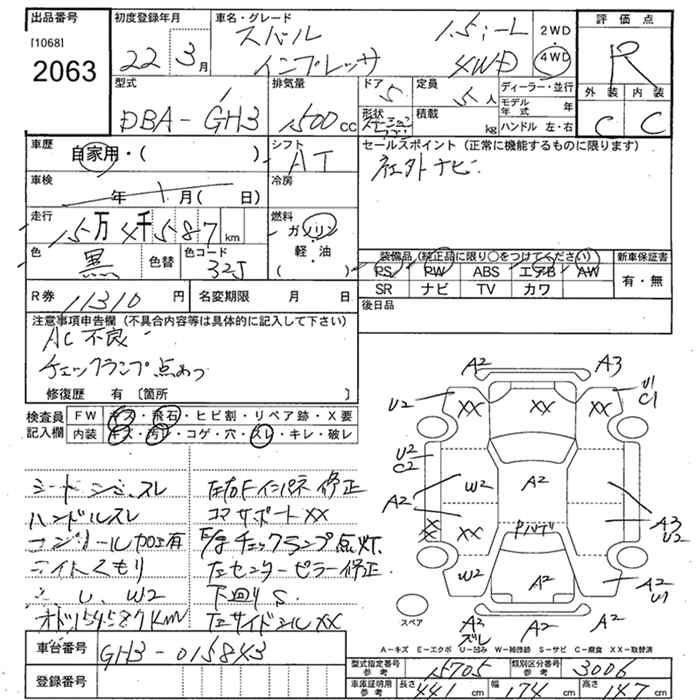 出品番号
[1068]
2063
初度登録年月
22 3月
車名・グレード
スバル
インプレッサ
1.5i-L
4WD
2WD
4WD
評価点
R
外装 内装
C C
型式
DBA-GH3
排気量
1500cc
ドア 5
形状
定員 5人
積載 kg
ディーラー・並行
モデル年式 年
ハンドル 左・右
車歴
自家用・( )
シフト
AT
セールスポイント (正常に機能するものに限ります)
社外ナビ
車検
年 月(日)
冷房
走行
15万4千587km
燃料
ガソリン
軽・油
( )
色
黒
色替
色コード
32J
装備品(純正品に限り○をつけてください)
PS PW ABS エアB AW
SR ナビ TV カワ
新車保証書
有・無
R券 11310円
名変期限 月 日
後日品
注意事項申告欄(不具合内容等は具体的に記入して下さい)
AC不良
チェックランプ点あり
修復歴 有〔箇所 〕
検査員記入欄
FW キズ・飛石・ヒビ割・リペア跡・X要
内装 キズ・汚レ・コゲ・穴・スレ・キレ・破レ
ハンドルスレ
コンソール加工有
ライトくもり
U, W2
オド154587Km
左右Fインパネ修正
コアサポートXX
E/gチェックランプ点灯
左センターピラー修正
下回りS
左サイドシルXX
A2
A3
U2
XX
XX
XX
U1
C1
U2
C2
A2
W2
A2
A3
U2
XX
XX
W2
A2
A2
A2
U1
スペア
A2
ズレ
A2
A-キズ E-エクボ U-凹み W-補修跡 S-サビ C-腐食 XX-取替済
車台番号
GH3-015843
登録番号
型式指定番号
参考
15705
類別区分番号
参考
3006
車庫証明用
参考
長さ 441cm
幅 174cm
高さ 147cm